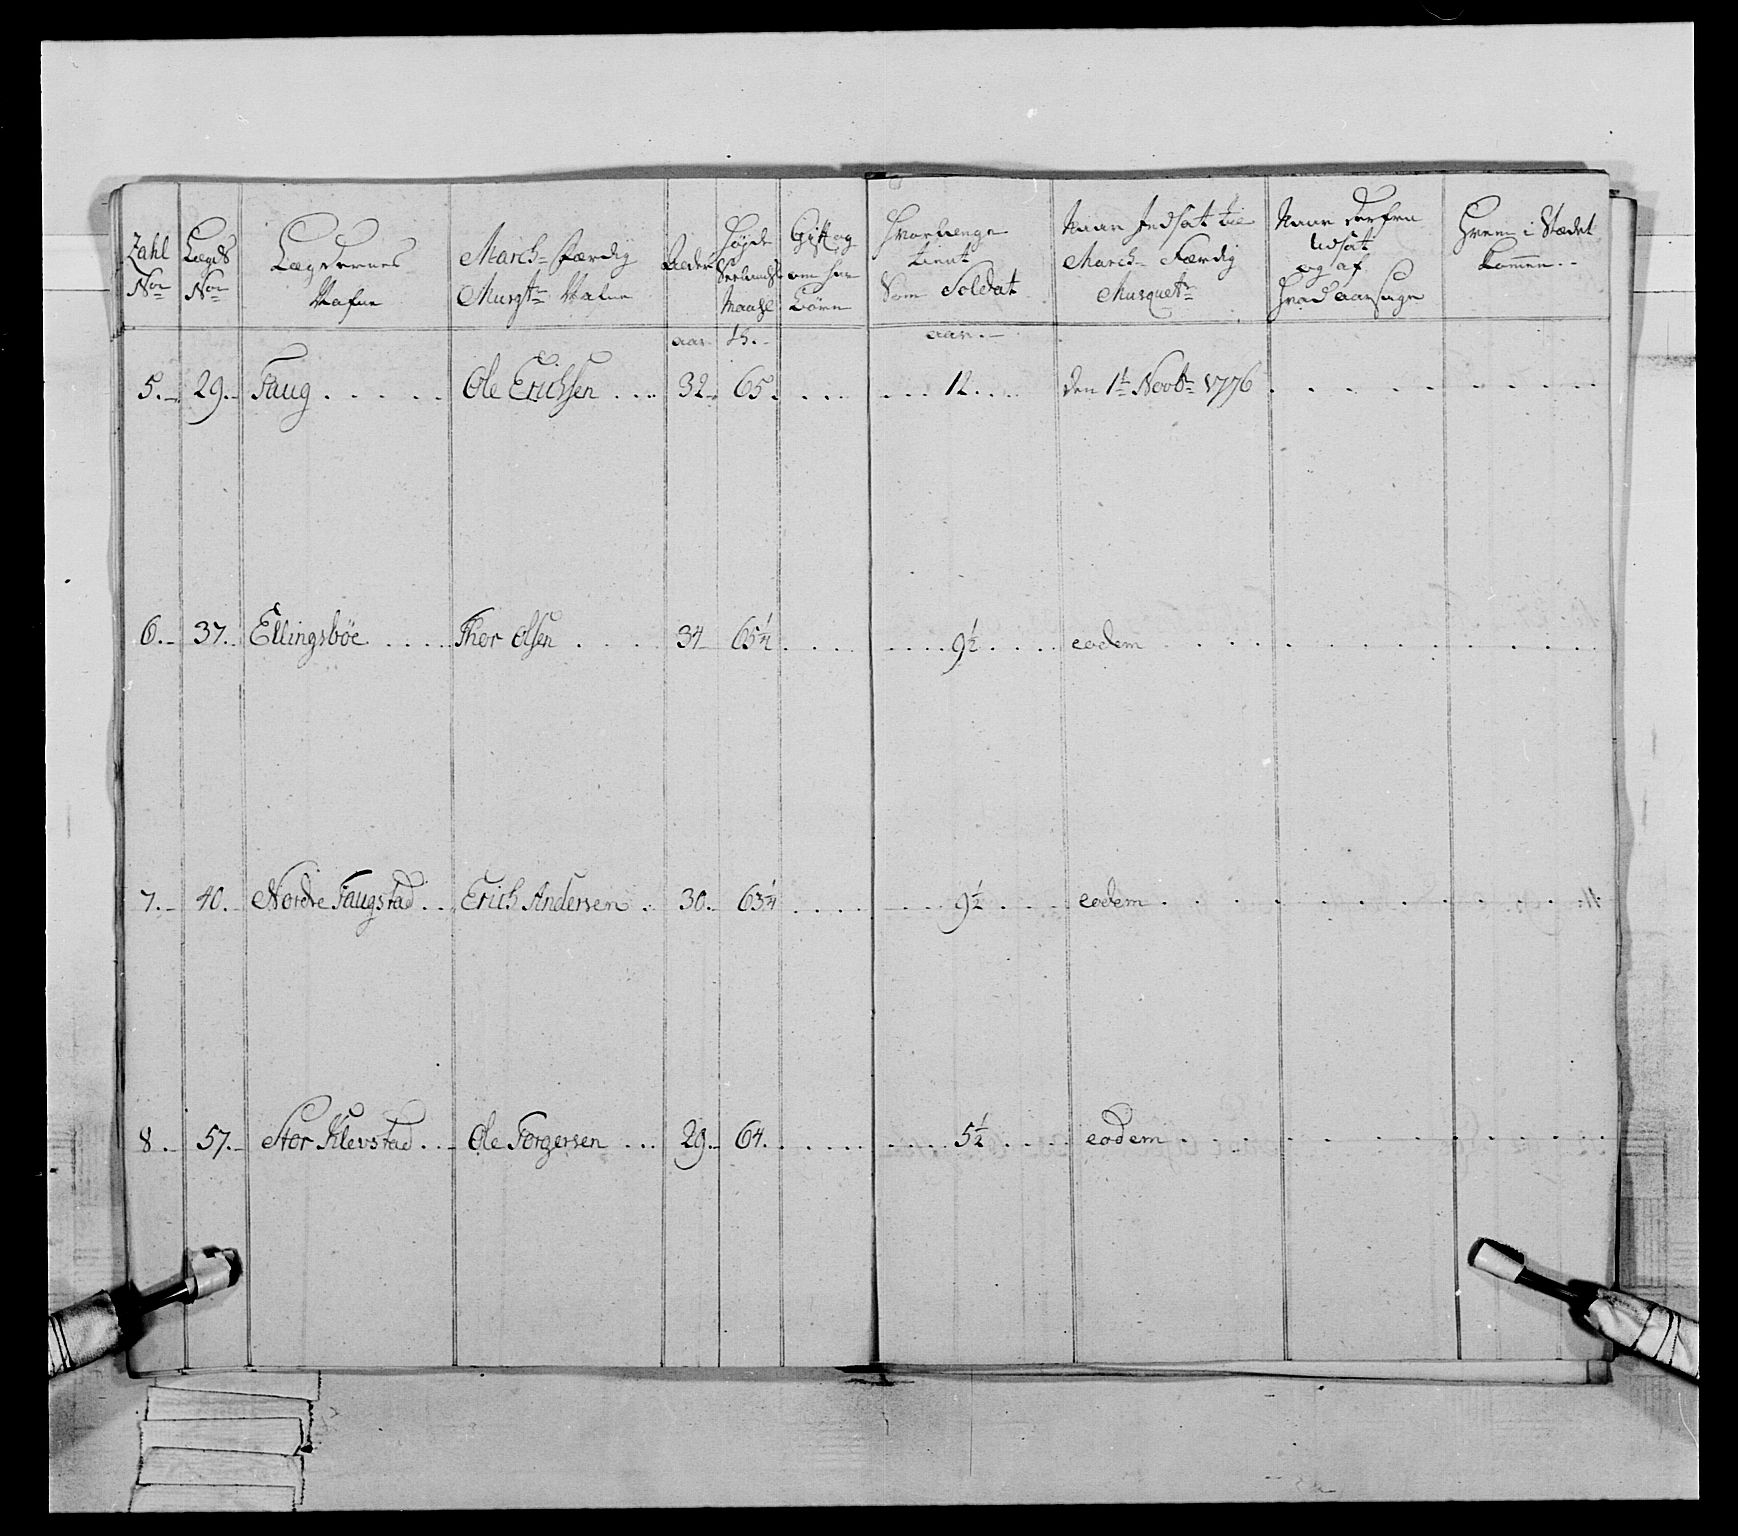 Zahl No | Lægds No | Lægdernes Nafne | March-færdig Musqt Nafne | Alder | Høyde Siellandsk Maahl | Gift og om har Børn | Hvorlenge tient Som Soldat | Naar Indsat til March-Færdig Musquetr | Naar derfra Udsat og af Hvad aarsage | Hvem i Stædet kommen
aar | T. | aar
5. | 29. | Haug . . . . . | Ole Erichsen . . . | 32 | 65. | . . . | . . . 12. . . | den 1t Novbr 1776 . . . . .
6. | 37. | Ellingsbøe . . . . | Thor Olsen . . . . | 34 | 65¼ | . . . . | . . . . 9½ . . . . | eodem . . . . .
7. | 40. | Nordre Haugstad . . | Erich Andersen . | 30. | 63¼ | . . . . | . . . 9½ . . . | eodem . . . . .
8. | 57. | Stor Klevstad . . | Ole Torgersen . . . | 29. | 64. | . . . . . | . . . 5½ . . . | eodem . . . . .